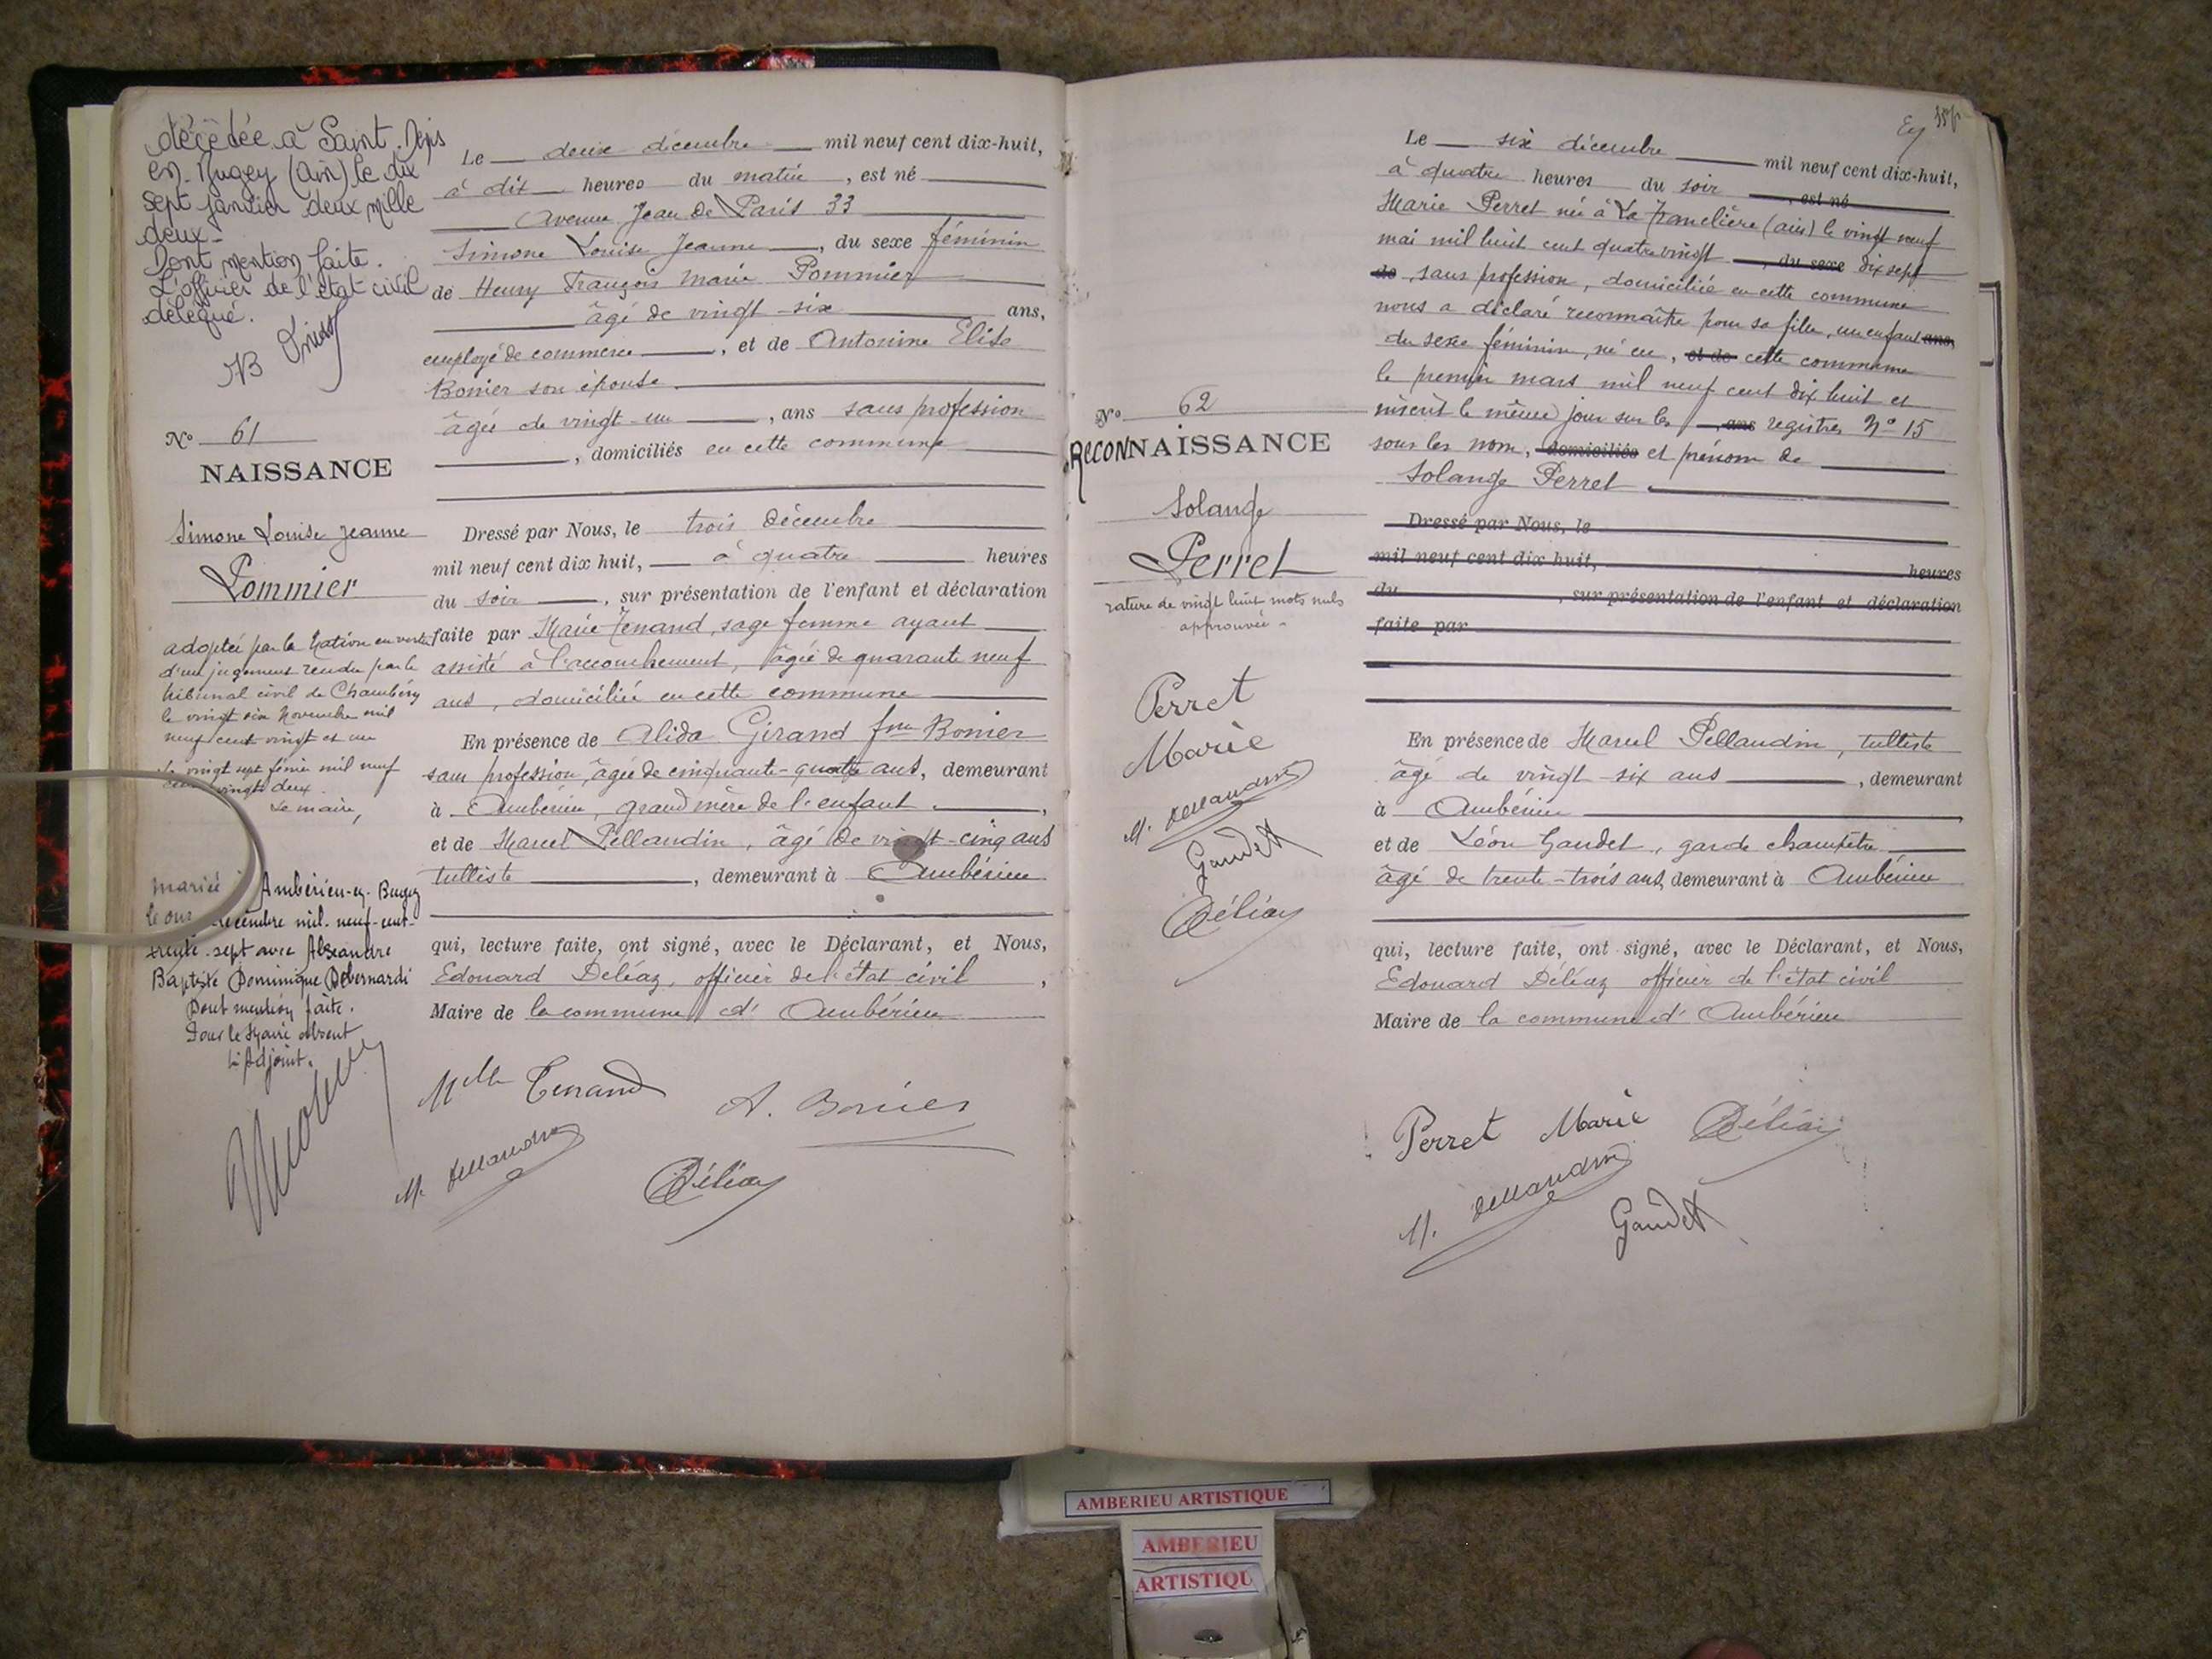 décédée à Saint-Denis
en-Bugey (Ain) le dix
sept janvier deux mille
deux-
Dont mention faite.
L'officier de l'état civil
délégué.
N° 61
NAISSANCE
Simone Louise Jeanne
Pommier
adoptée par la Nation en vertu
d'un jugement rendu par le
tribunal civil de Chambéry
le vingt six Novembre mil
neuf cent vingt et un
vingt sept février mil neuf
cent vingt deux.
Le maire,
mariée Ambérieu-en-Bugey
le onze décembre mil-neuf-cent-
trente-sept avec Alexandre
Baptiste Dominique Debernardi
Dont mention faite.
Pour le Maire absent
L'Adjoint.
Le deux décembre mil neuf cent dix-huit,
à dix heures du matin, est né
Avenue Jean de Paris 33
Simone Louise Jeanne, du sexe féminin
de Henry François Marie Pommier
âgé de vingt-six ans,
employé de commerce, et de Antonine Elise
Bonier son épouse
âgée de vingt-un, ans sans profession
, domiciliés en cette commune
Dressé par Nous, le trois décembre
mil neuf cent dix huit, à quatre heures
du soir, sur présentation de l'enfant et déclaration
faite par Marie Tenand, sage femme ayant
assisté à l'accouchement, âgée de quarante neuf
ans, domiciliée en cette commune
En présence de Alida Girand fme Bonier
sans profession, âgée de cinquante-quatre ans, demeurant
à Ambérieu, grand mère de l'enfant.
et de Marcel Pellandin, âgé de vingt-cinq ans
tulliste, demeurant à Ambérieu
qui, lecture faite, ont signé, avec le Déclarant, et Nous,
Edouard Déléaz, officier de l'état civil,
Maire de la commune d'Ambérieu
Mlle Tenand
A. Bonier
M. Pellandin
Déléaz
Le six décembre mil neuf cent dix-huit,
à quatre heures du soir, est né
Marie Perret née à La Tranclière (ain) le vingt neuf
mai mil huit cent quatre vingt, du sexe dix sept
de, sans profession, domiciliée en cette commune
nous a déclaré reconnaître pour sa fille, un enfant ans,
du sexe féminin, né en, et de cette commune
le premier mars mil neuf cent dix huit et
inscrit le même jour sur les, ans registres N° 15
sous les nom, domiciliés et prénom de
Solange Perret
Dressé par Nous, le
mil neuf cent dix huit, heures
du, sur présentation de l'enfant et déclaration
faite par
En présence de Marcel Pellandin, tulliste
âgé de vingt-six ans, demeurant
à Ambérieu
et de Léon Gaudet, garde champêtre
âgé de trente-trois ans, demeurant à Ambérieu
qui, lecture faite, ont signé, avec le Déclarant, et Nous,
Edouard Déléaz officier de l'état civil
Maire de la commune d'Ambérieu
Perret Marie Déléaz
M. Pellandin
Gaudet
N° 62
RECONNAISSANCE
Solange
Perret
rature de vingt huit mots nuls
approuvée-
Perret
Marie
M. Pellandin
Gaudet
Déléaz
AMBERIEU ARTISTIQUE
AMBERIEU
ARTISTIQU